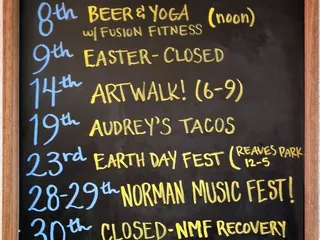 8th BEER & YOGA (noon)
w/ FUSION FITNESS
9th EASTER-CLOSED
14th ARTWALK! (6-9)
19th AUDREY'S TACOS
23rd EARTH DAY FEST (REAVES PARK
12-5
28-29th NORMAN MUSIC FEST!
30th CLOSED-NMF RECOVERY